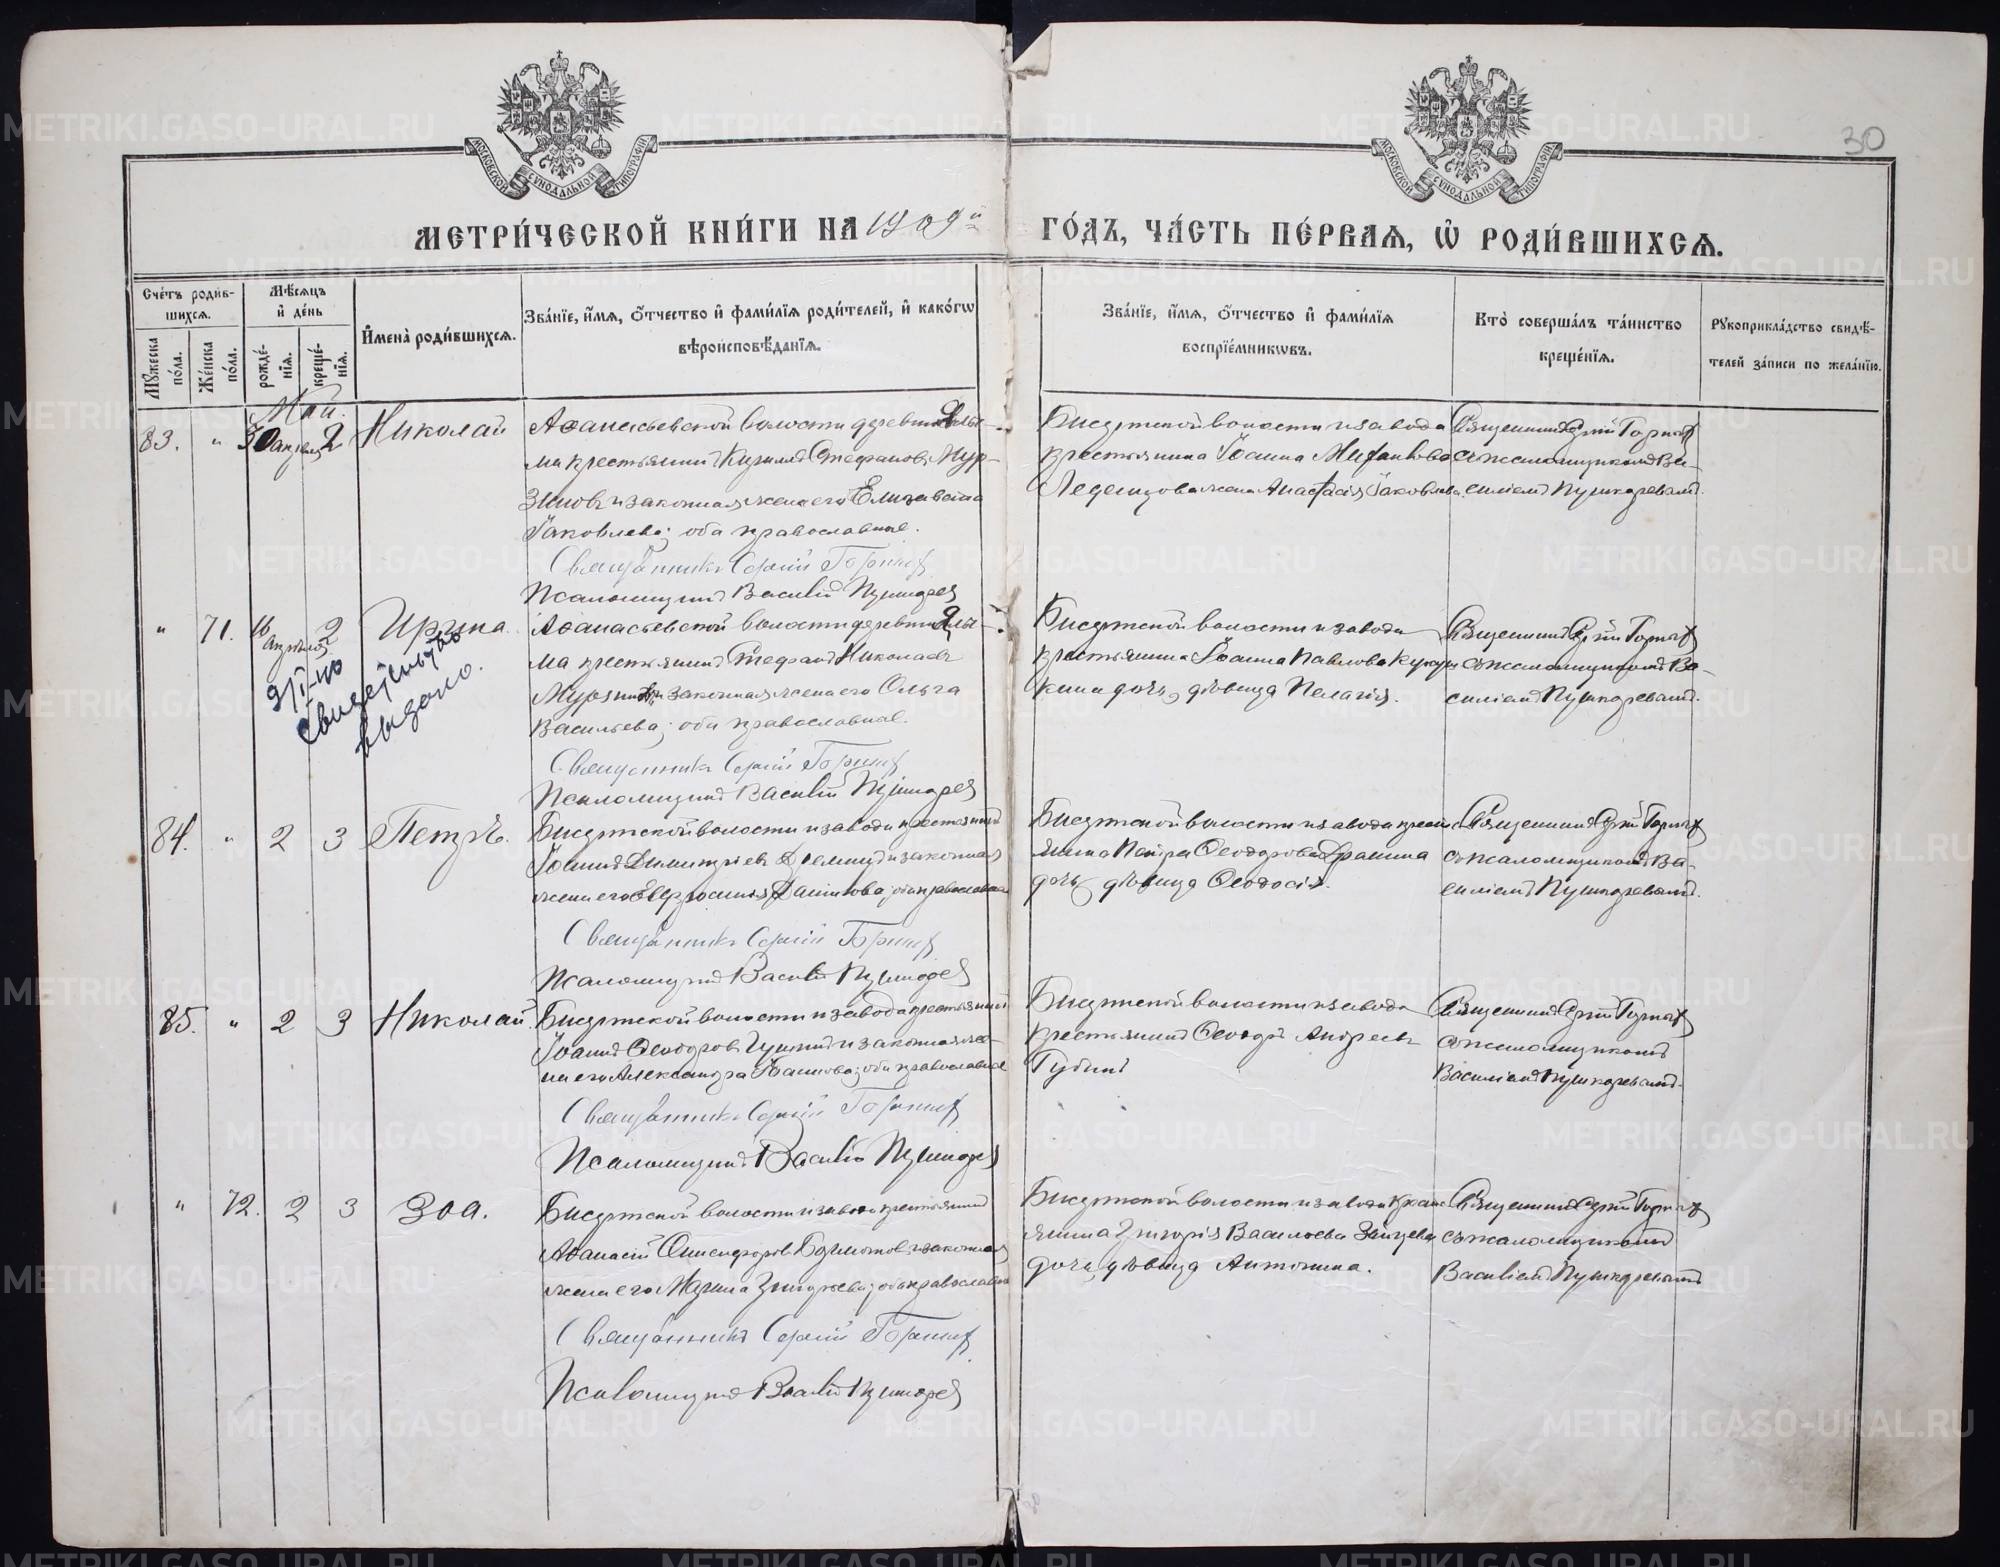 30
МОСКОВСКОЙ СУНОДАЛЬНОЙ ТИПОГРАФІИ
МОСКОВСКОЙ СУНОДАЛЬНОЙ ТИПОГРАФІИ
МЕТРИ́ЧЕСКОЙ КНИ́ГИ НА 1909й
ГО́ДЪ, ЧА́СТЬ ПЕ́РВАѦ, Ѡ҆ РОДИ́ВШИХСѦ.
Сче́тъ роди́в-
шихсѧ.
Мꙋ́жеска по́ла.
Же́нска по́ла.
Мѣ́сѧцъ
и҆ де́нь
рожде́-
нїѧ.
креще́-
нїѧ.
И҆мена̀ роди́вшихсѧ.
Зва́нїе, и҆́мѧ, ѻ҆́тчество и҆ фами́лїѧ роди́телей, и҆ како́гѡ
вѣроисповѣ́данїѧ.
Зва́нїе, и҆́мѧ, ѻ҆́тчество и҆ фами́лїѧ
воспрїе́мникѡвъ.
Кто̀ соверша́лъ та́инство
креще́нїѧ.
Рꙋкоприкла́дство свидѣ́-
телей за́писи по жела́нїю.
Май.
83. " 30 апреля 2 Николай
Аѳанасьевской волости деревни Ялы-
ма крестьянинъ Кириллъ Стефановъ Мур-
зиновъ и законная жена его Елизавета
Іаковлева; оба православные.
Священникъ Сергій
Псаломщикъ Василій Пушкарев
Бисертской волости и завода
крестьянина Іоанна
Леденцова жена Анастасія Іаковлева.
Священникъ Сергій
съ псаломщикомъ Ва-
силіемъ Пушкаревымъ.
" 71. 16 апреля 2 Ирина
Свидетельство
выдано.
Аѳанасьевской волости деревни Ялы-
ма крестьянинъ Стефанъ Николаевъ
Мурзиновъ и законная жена его Ольга
Васильева; оба православные.
Священникъ Сергій
Псаломщикъ Василій Пушкарев
Бисертской волости и завода
крестьянина Іоанна Павлова
дочь, дѣвица Пелагія.
Священникъ Сергій
съ псаломщикомъ Ва-
силіемъ Пушкаревымъ.
84. " 2 3 Петръ.
Бисертской волости и завода крестьянинъ
Іоаннъ Димитріевъ и законная
жена его Евфросинія; оба православные
Священникъ Сергій
Псаломщикъ Василій Пушкарев
Бисертской волости и завода крестья-
нина Петра Ѳеодорова
дочь дѣвица Ѳеодосія.
Священникъ Сергій
съ псаломщикомъ Ва-
силіемъ Пушкаревымъ.
85. " 2 3 Николай.
Бисертской волости и завода крестьянинъ
Іоаннъ Ѳеодоровъ и законная же-
на его Александра Іоаннова; оба православные
Священникъ Сергій
Псаломщикъ Василій Пушкарев
Бисертской волости и завода
крестьянинъ Ѳеодоръ Андреевъ
Губинъ
Священникъ Сергій
съ псаломщикомъ
Василіемъ Пушкаревымъ.
" 72. 2 3 Зоа.
Бисертской волости и завода крестьянинъ
Аѳанасій и законная
жена его; оба православные
Священникъ Сергій
Псаломщикъ Василій Пушкарев
Бисертской волости и завода кресть-
янина Григорія Васильева Зайцева
дочь, дѣвица Антонина.
Священникъ Сергій
съ псаломщикомъ
Василіемъ Пушкаревымъ
METRIKI.GASO-URAL.RU